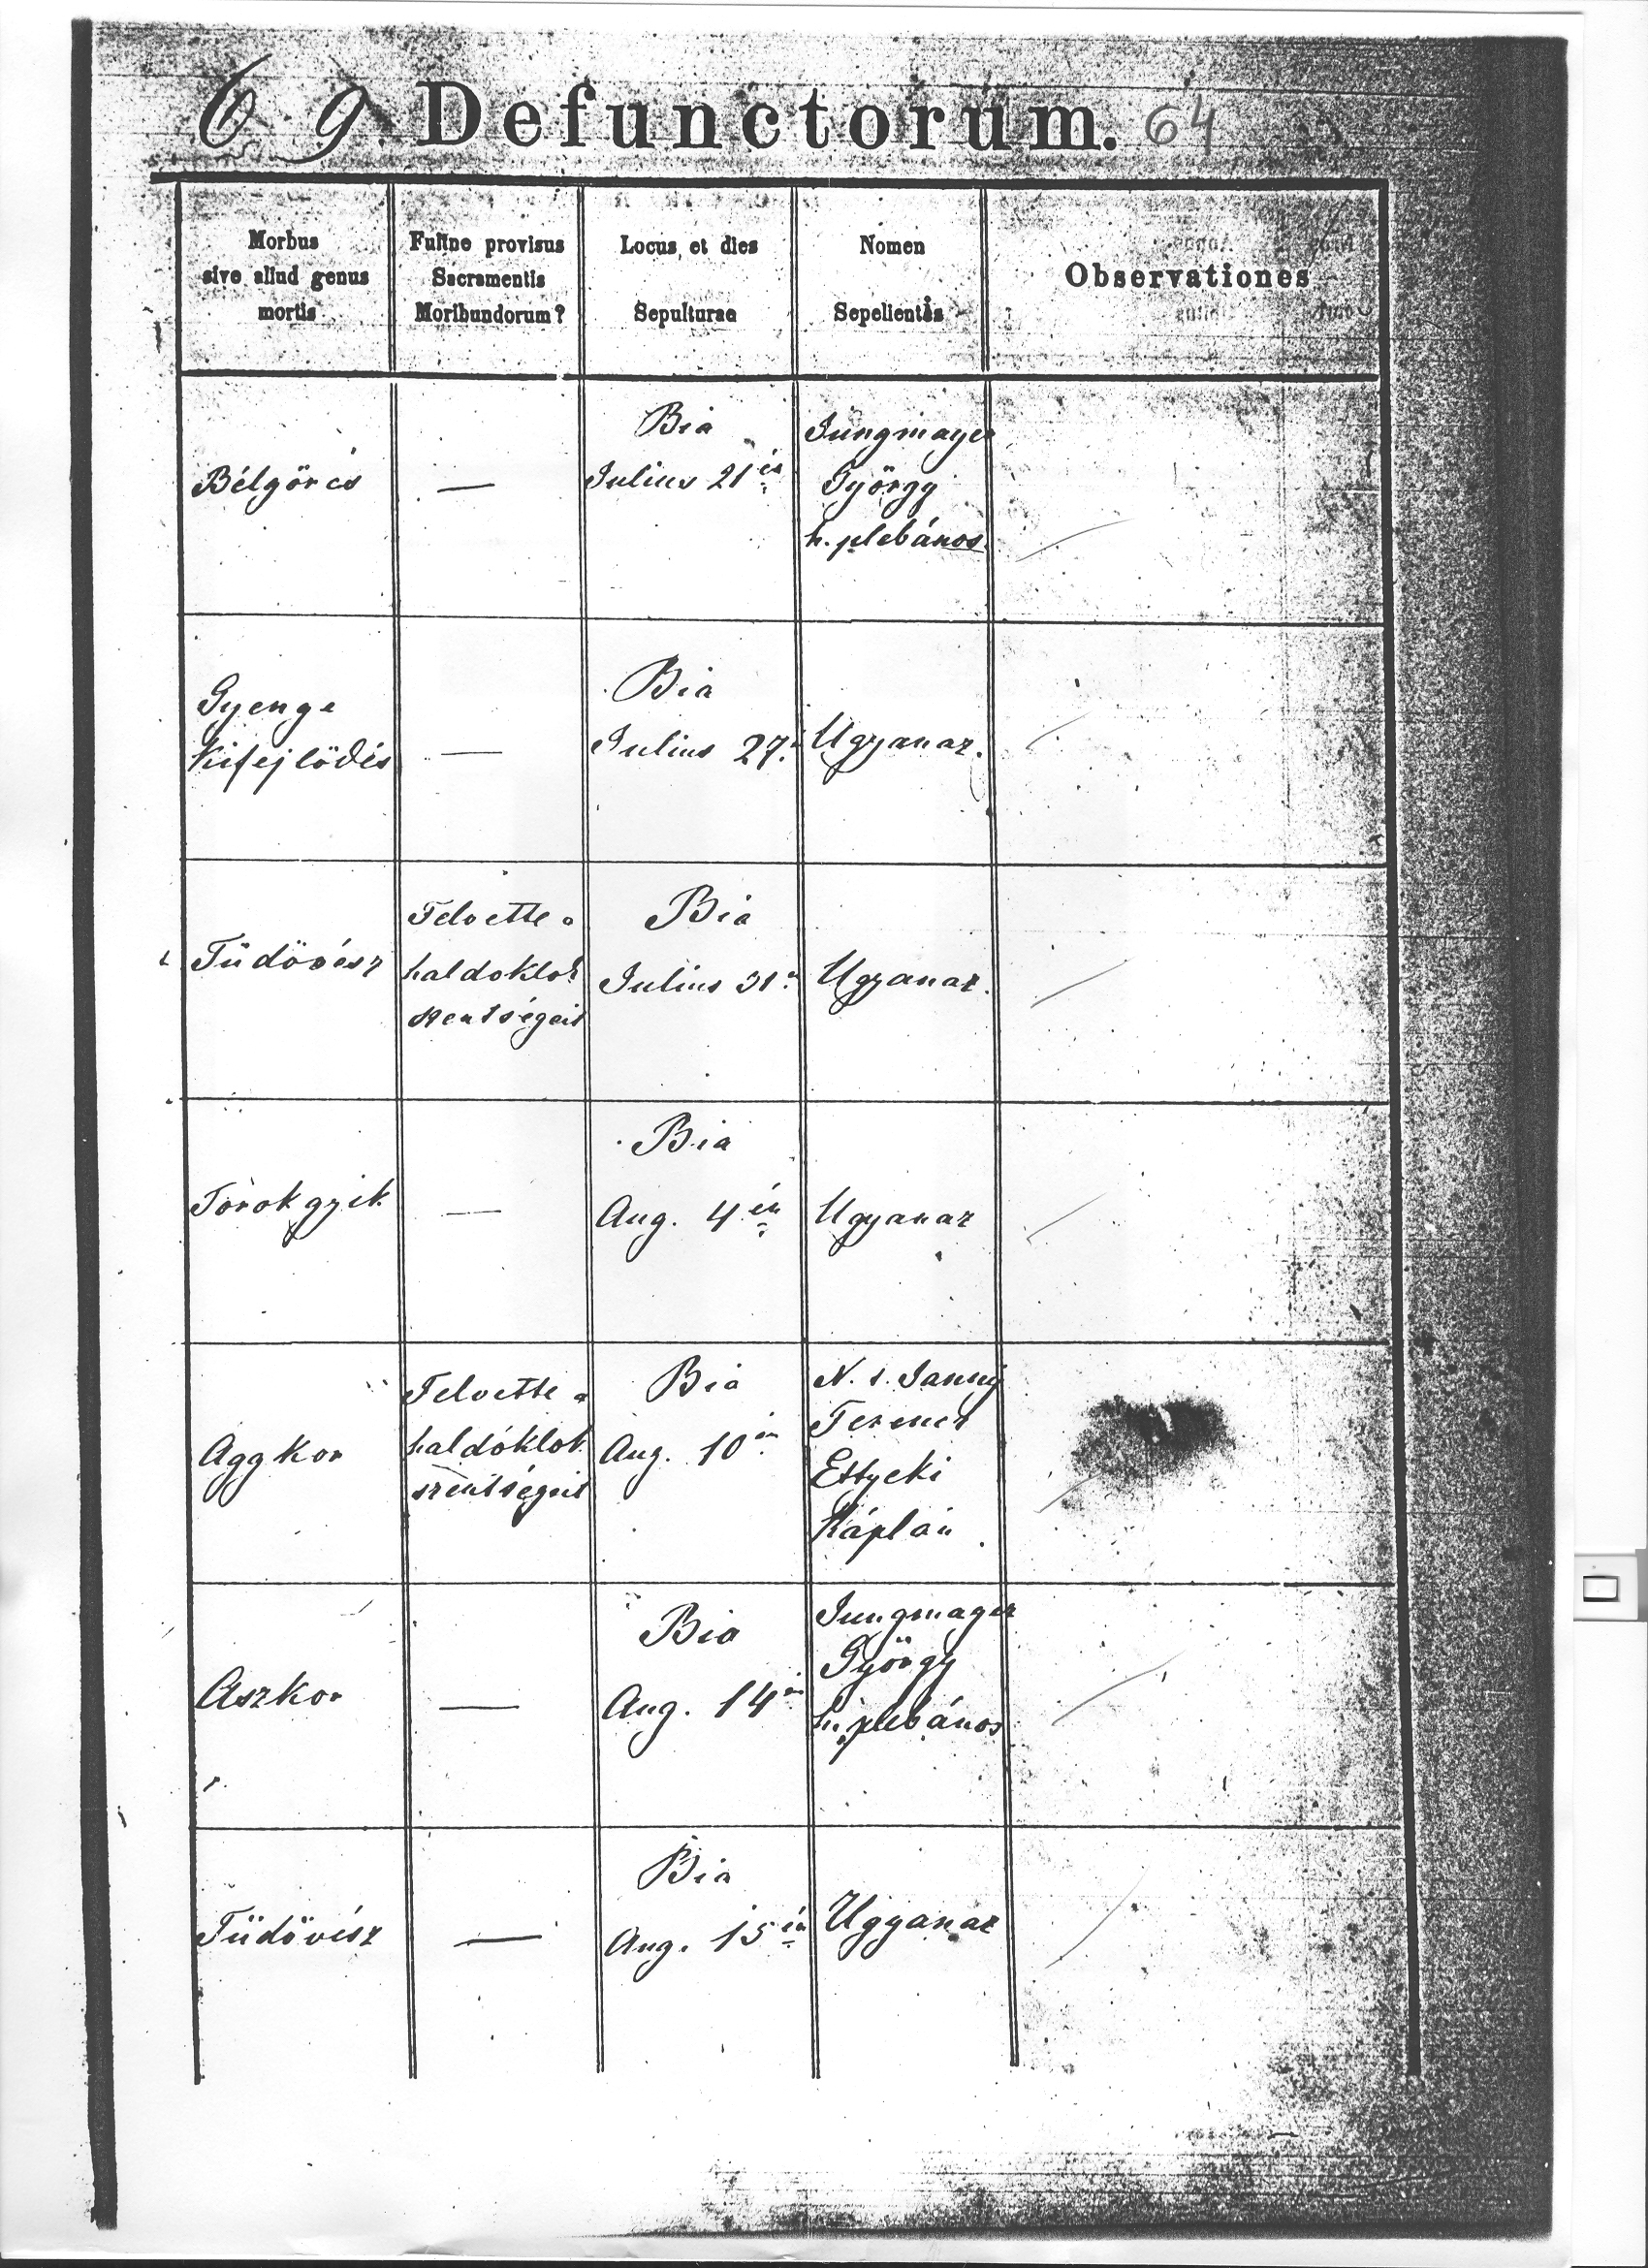 69. Defunctorum. 64
Morbus
sive aliud genus
mortis
Fuitne provisus
Sacramentis
Moribundorum?
Locus et dies
Sepulturae
Nomen
Sepelientis
Observationes
Bélgörcs
—
Bia
Julius 21én
Jungmayer
György
h. plebános.
Gyenge
kifejlődés
—
Bia
Julius 27.
Ugyanaz.
Tüdővész
Felvette a
haldoklok
szentségeit
Bia
Julius 31
Ugyanaz.
Torokgyik
—
Bia
Aug. 4én
Ugyanaz
Aggkor
Felvette a
haldóklok
szentségeit
Bia
Aug. 10én
Ferencz
Etyeki
Káplán.
Aszkor
—
Bia
Aug. 14én
Jungmayer
György
h. plebános
Tüdővész
—
Bia
Aug. 15én
Ugyanaz